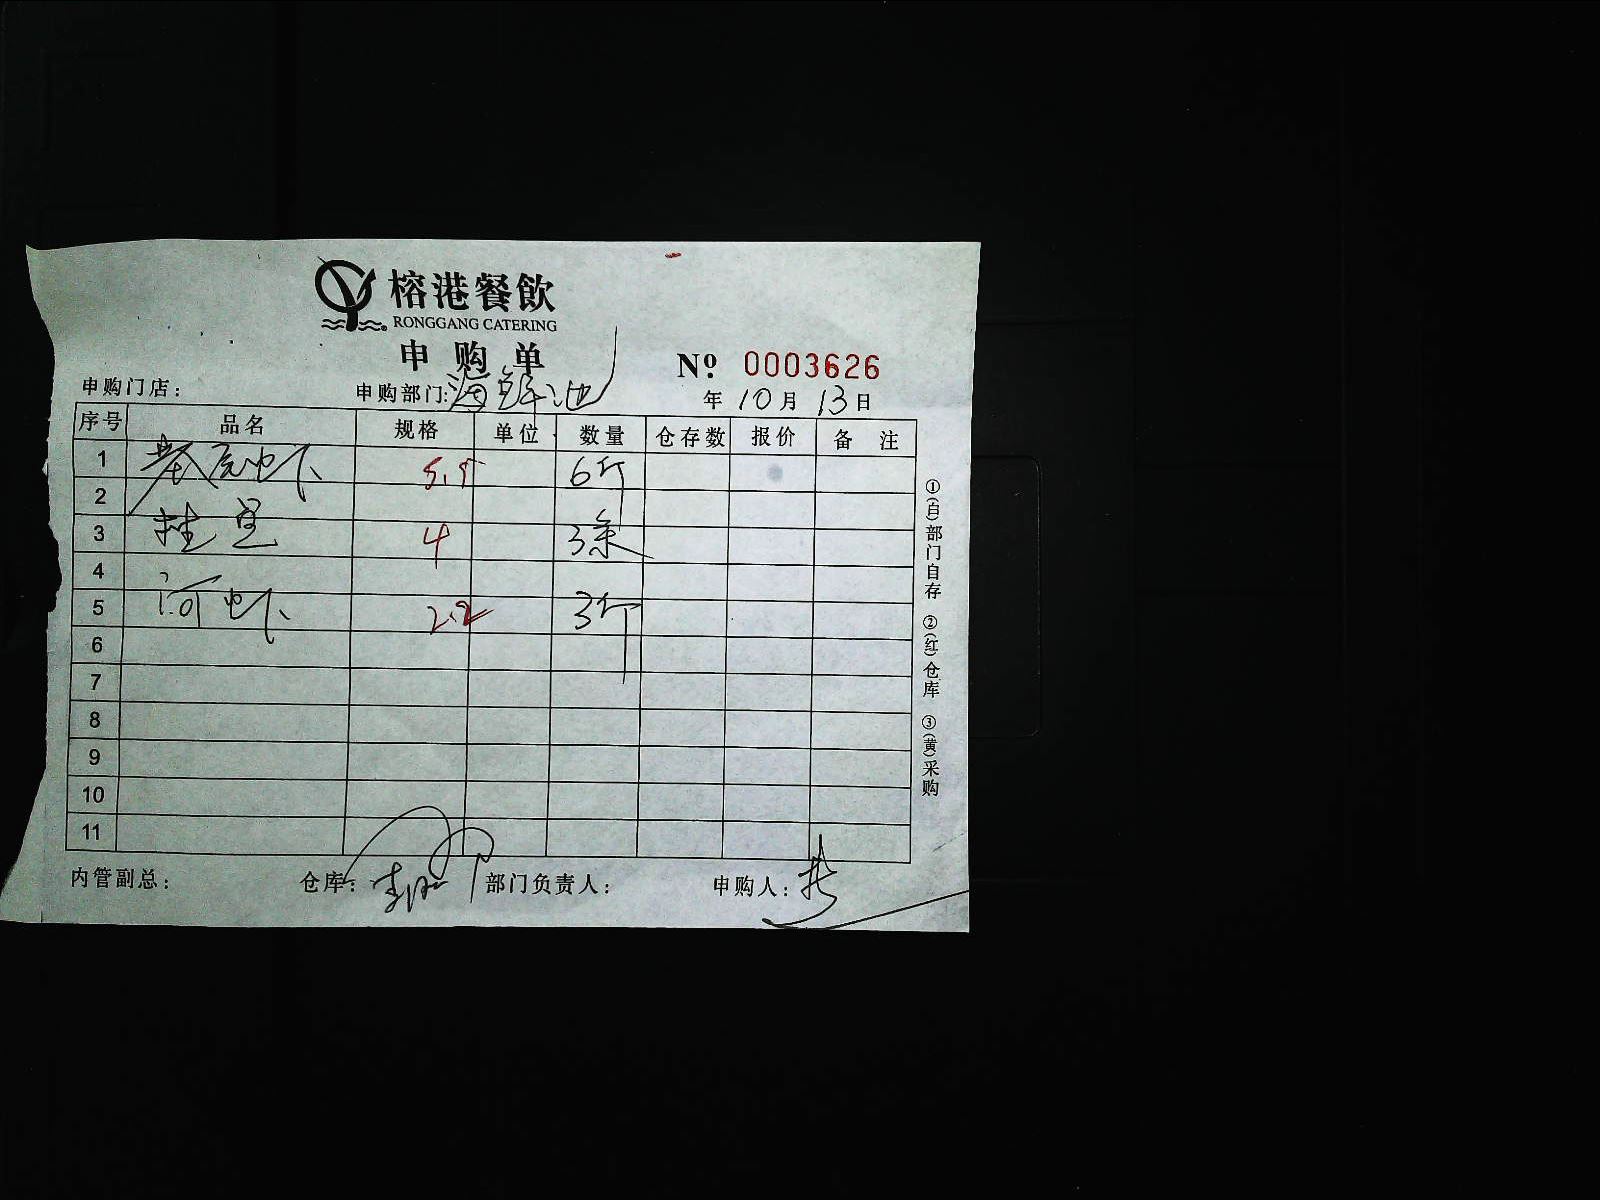 榕港餐飲
RONGGANG CATERING
申购单
№ 0003626
申购门店： 申购部门：海鲜池 年10月13日
序号 品名 规格 单位 数量 仓存数 报价 备注
1 5.5 6斤
2
3 桂鱼 4 3条
4
5 河虾 2.2 3斤
6
7
8
9
10
11
内管副总： 仓库： 部门负责人： 申购人：
①(白)部门自存 ②(红)仓库 ③(黄)采购